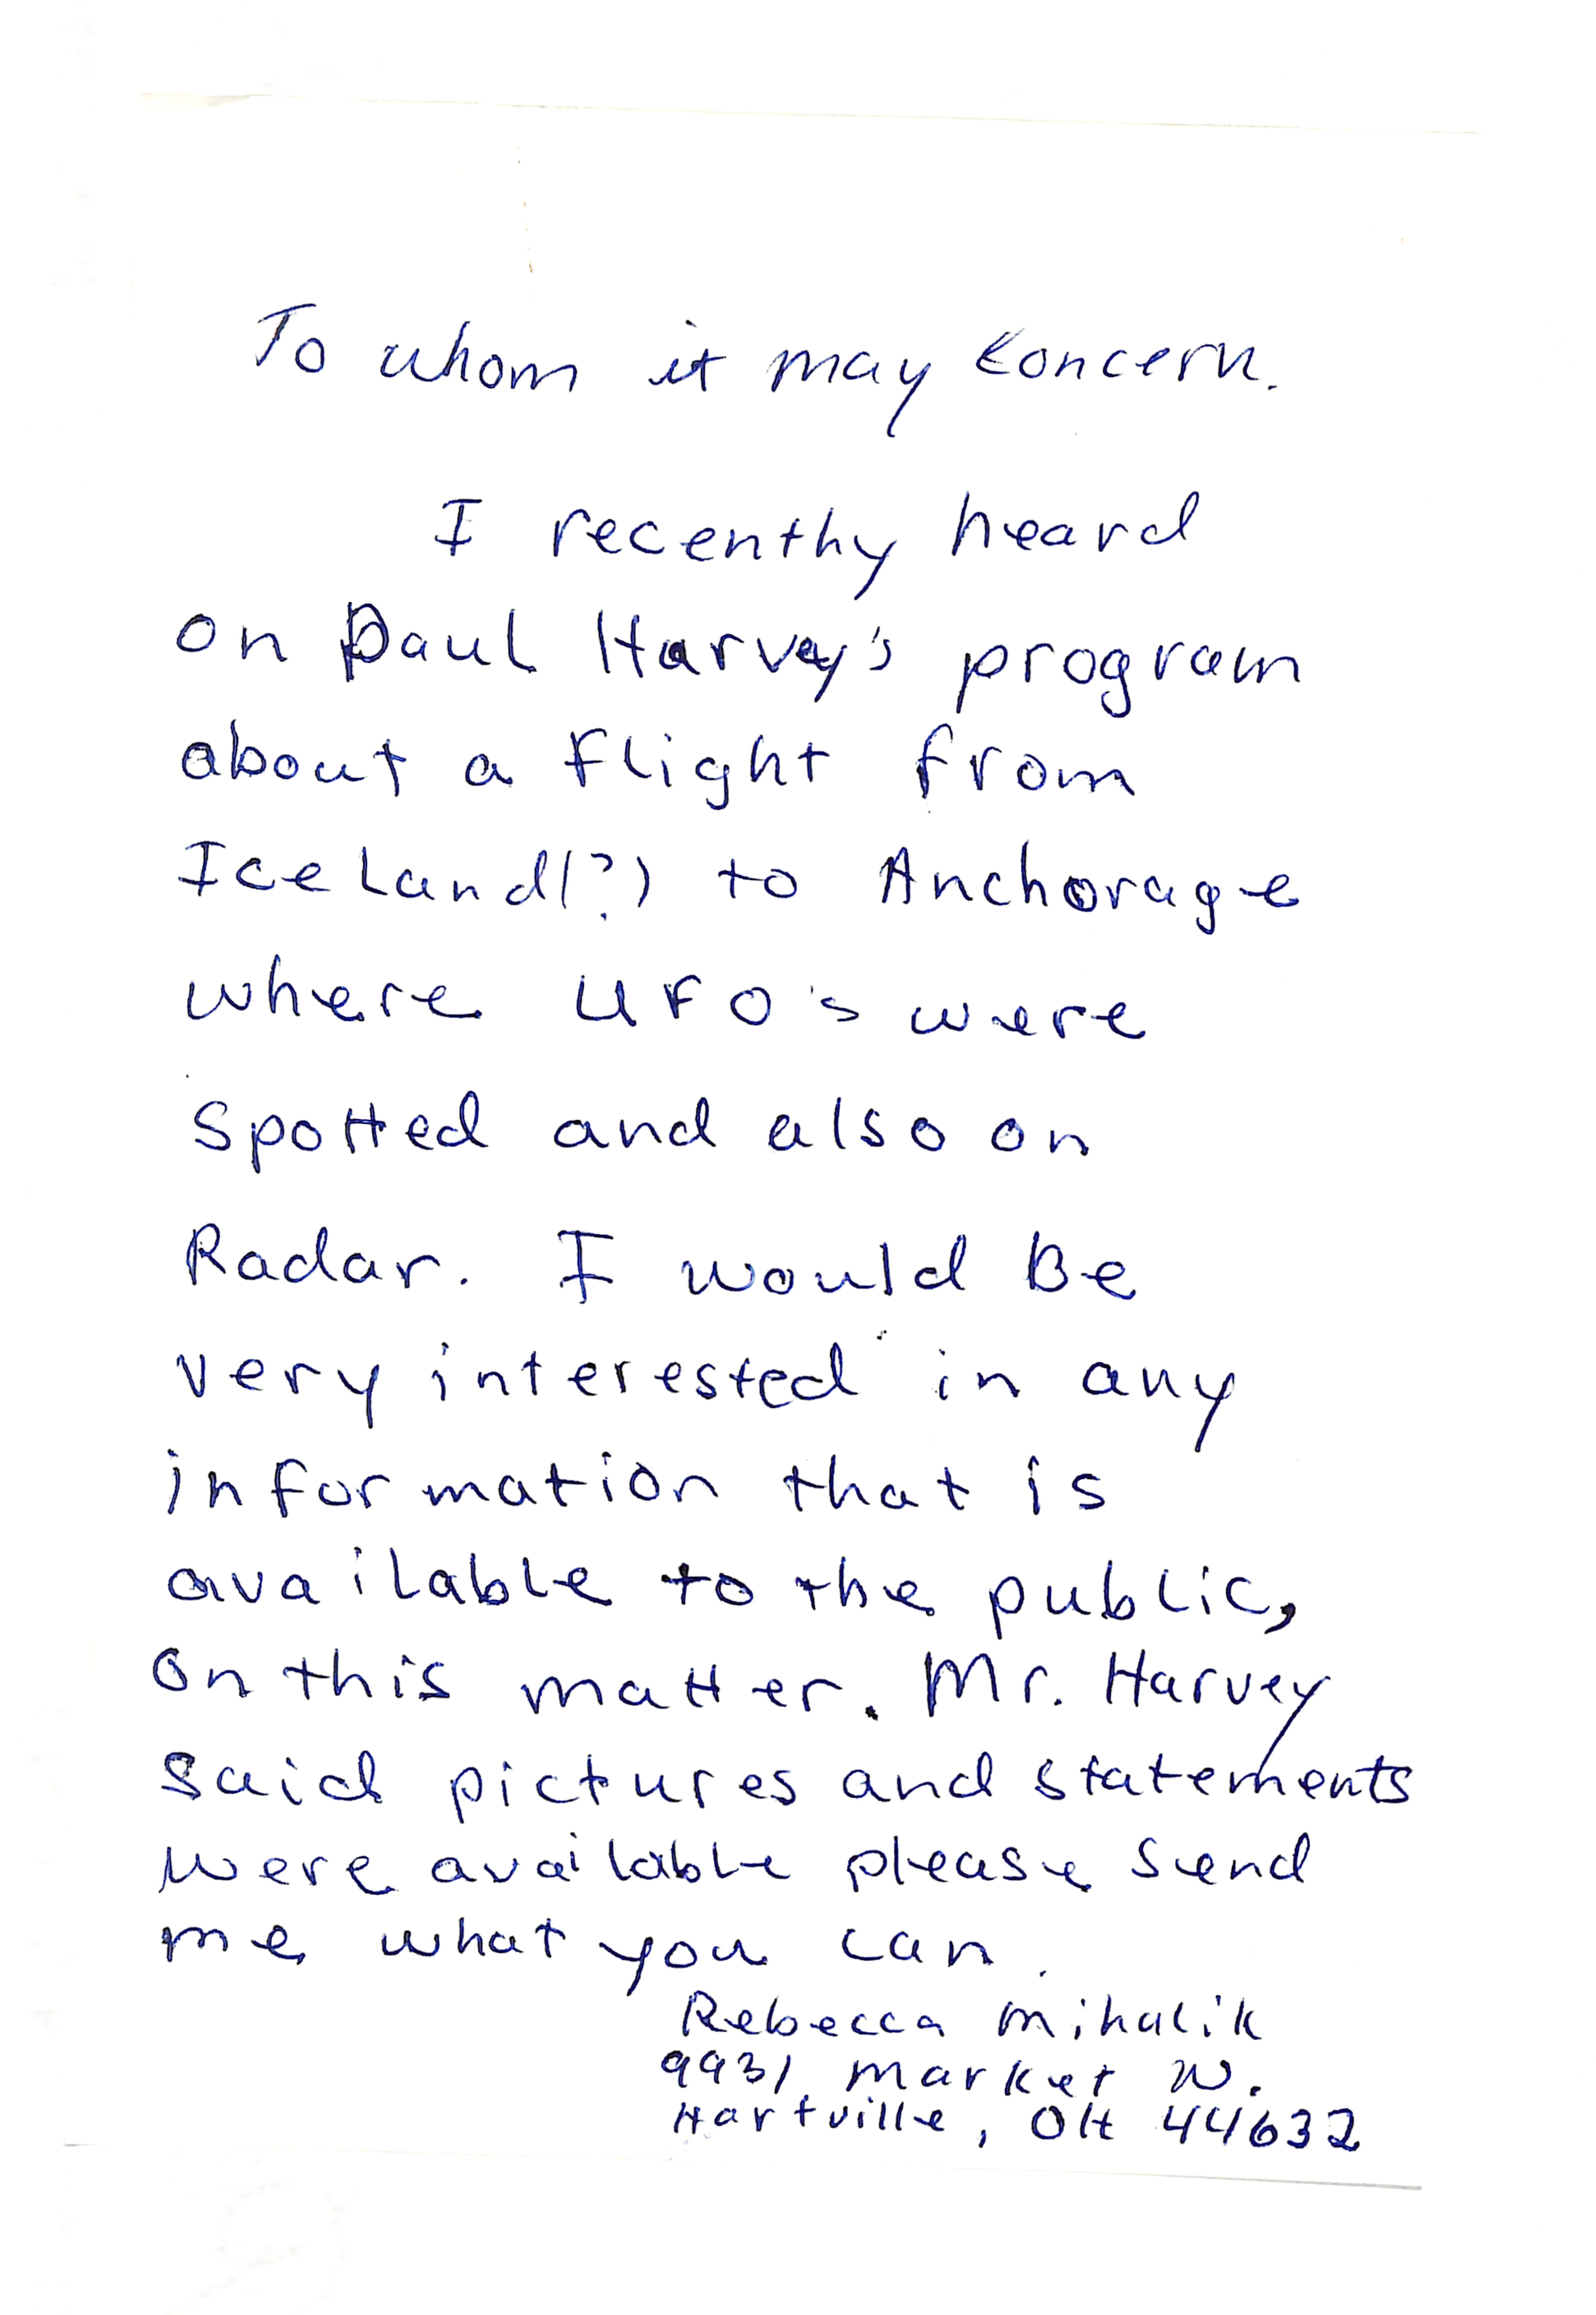 To whom it may concern.
I recenthy heard
on Paul Harvey's program
about a flight from
Iceland(?) to Anchorage
where UFO's were
spotted and also on
Radar. I would Be
very interested in any
information that is
available to the public,
on this matter. Mr. Harvey
said pictures and statements
were available please send
me what you can.
Rebecca Mihalik
9931 Market W.
Hartville, OH 44632